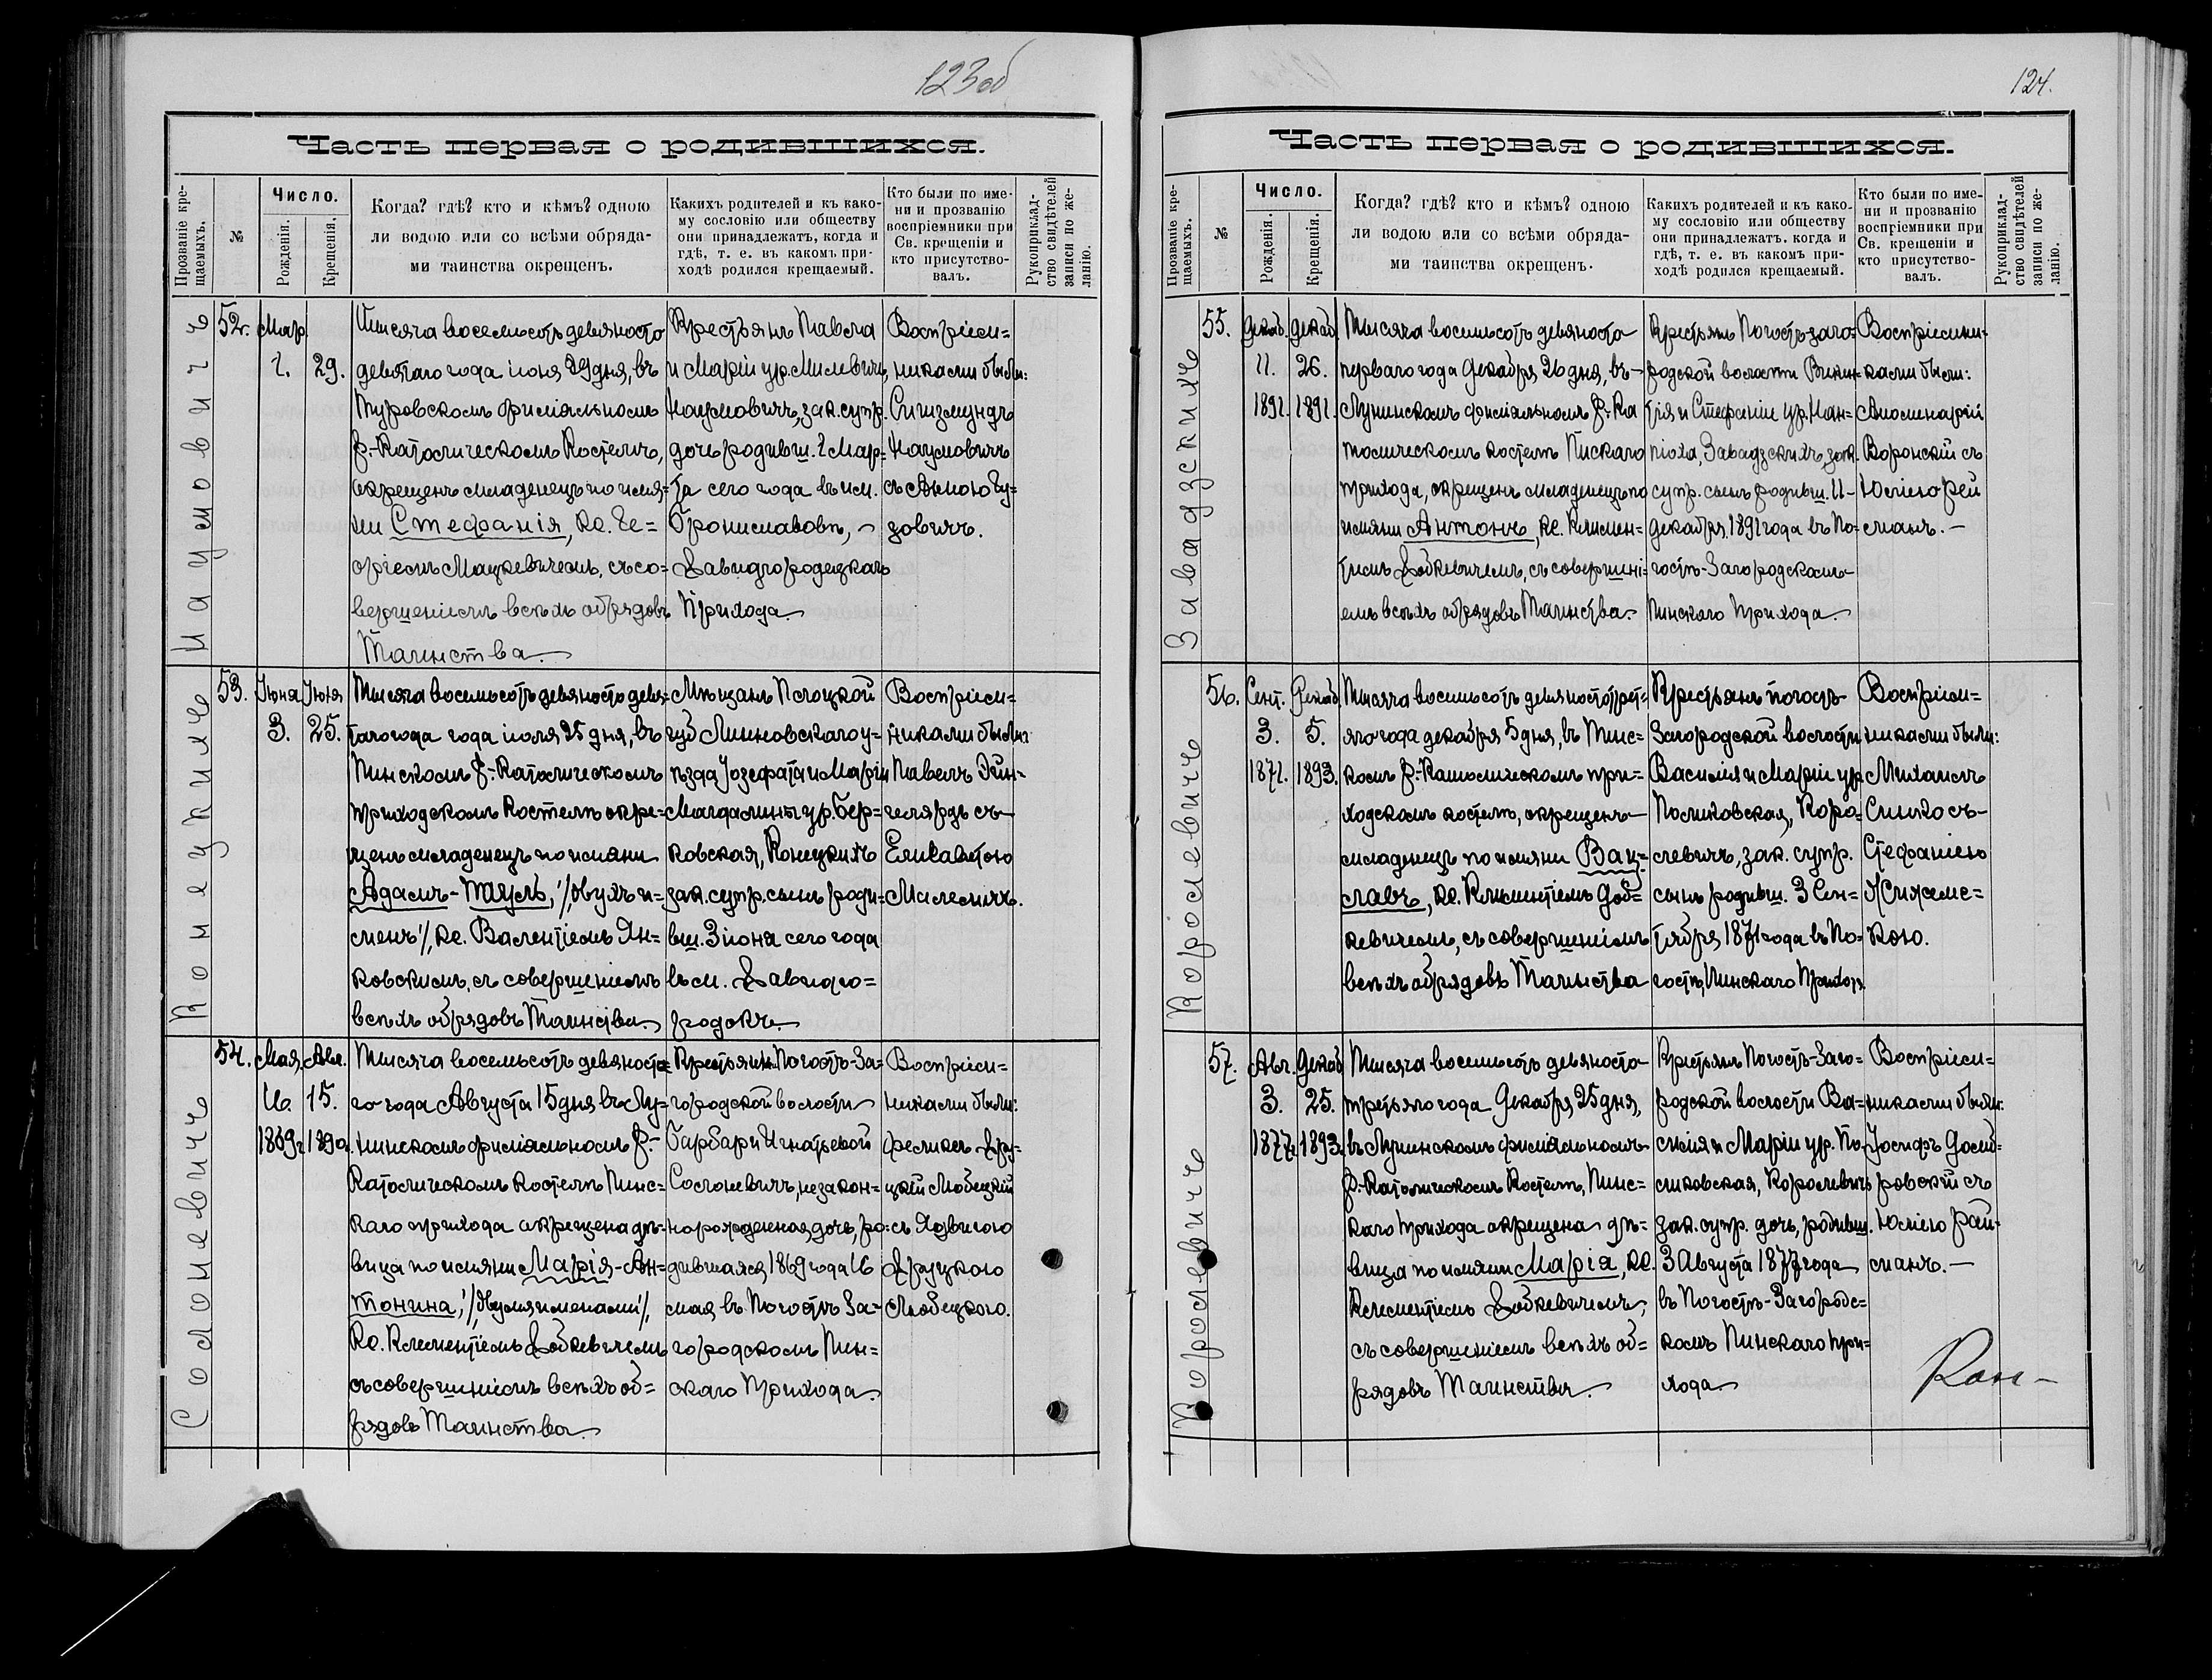 123 об
Часть первая о родившихся.
Прозваніе кре-
щаемыхъ.
№
Число.
Рожденія.
Крещенія.
Когда? гдѣ? кто и кѣмъ? одною
ли водою или со всѣми обряда-
ми таинства окрещенъ.
Какихъ родителей и къ како-
му сословію или обществу
они принадлежатъ, когда и
гдѣ, т. е. въ какомъ при-
ходѣ родился крещаемый.
Кто были по име-
ни и прозванію
воспріемники при
Св. крещеніи и
кто присутство-
валъ.
Рукоприклад-
ство свидѣтелей
записи по же-
ланію.
Наумовичъ
52.
Мар.
2.
29.
Тысяча восемьсотъ девяносто
девятаго года іюня 29 дня, въ
Туровскомъ филіяльномъ
Р.-Католическомъ Костелѣ,
окрещенъ младенецъ по имя-
ни Стефанія, Кс. Ге-
оргіемъ Мацкевичемъ, съ со-
вершеніемъ всѣхъ обрядовъ
Таинства.
Крестьянъ Павла
и Маріи ур. Милевичъ,
Наумовичъ, зак. супр.
дочь родивш. 2 Мар-
та сего года въ им.
Брониславовѣ,
Давидгородецкаго
Прихода.
Воспріем-
никами были:
Сигизмундъ
Наумовичъ
съ Анною Гу-
зовичъ.
Конецкихъ
53.
Іюня
3.
Іюля
25.
Тысяча восемьсотъ девяносто девя-
таго года года іюля 25 дня, въ
Пинскомъ Р.-Католическомъ
приходскомъ Костелѣ окре-
щенъ младенецъ по имяни
Адамъ-Паулъ, /двухъ и-
менъ/, Кс. Валентіемъ Ян-
ковскимъ, съ совершеніемъ
всѣхъ обрядовъ Таинства.
Мѣщанъ Плоцкой
губ Липновскаго у-
ѣзда Іозефата и Маріи
Магдалины ур. Бер-
ковская, Конецкихъ
зак. супр. сынъ роди-
вш. 3 іюня сего года
въ м. Давидго-
родокъ.
Воспріем-
никами были
Павелъ Эйн-
гелярдъ съ
Елизаветою
Малевичъ.
Солоневичъ
54.
Мая
16.
1869 г.
Авг.
15.
1890 г.
Тысяча восемьсотъ девяноста-
го года Августа 15 дня въ Лу-
нинскомъ филіяльномъ Р.-
Католическомъ Костелѣ Пинс-
каго прихода окрещена дѣ-
вица по имяни Марія-Ан-
тонина, /двумя именами/,
Кс. Клементіемъ Добкевичемъ
съ совершеніемъ всѣхъ об-
рядовъ Таинства.
Крестьянки Погостъ-За-
городской волости
Барбары Игнатьевой
Солоневичъ, незакон-
норожденная дочь, ро-
дившаяся 1869 года 16
мая въ Погостѣ За-
городскомъ Пин-
скаго Прихода.
Воспріем-
никами были:
Феликсъ Дру-
цкій Любецкій
съ Ядвигою
Друцкою
Любецкою.
124.
Часть первая о родившихся.
Прозваніе кре-
щаемыхъ.
№
Число.
Рожденія.
Крещенія.
Когда? гдѣ? кто и кѣмъ? одною
ли водою или со всѣми обряда-
ми таинства окрещенъ.
Какихъ родителей и къ како-
му сословію или обществу
они принадлежатъ. когда и
гдѣ, т. е. въ какомъ при-
ходѣ родился крещаемый.
Кто были по име-
ни и прозванію
воспріемники при
Св. крещеніи и
кто присутство-
валъ.
Рукоприклад-
ство свидѣтелей
записи по же-
ланію.
Завадзскихъ
55.
Декаб.
11.
1891.
Декаб.
26.
1891.
Тысяча восемьсотъ девяносто
перваго года Декабря 26 дня, въ
Лунинскомъ филіяльномъ Р.-Ка
толическомъ костелѣ Пинскаго
прихода, окрещенъ младенецъ по
имяни Антонъ, Кс. Клемен-
тіемъ Добкевичемъ, съ совершені-
емъ всѣхъ обрядовъ Таинства.
Крестьянъ Погостъ-Заго-
родской волости Викен-
тія и Стефаніи ур.
Завадзскихъ, зак.
супр. сынъ родивш. 11
Декабря 1891 года въ По-
гостѣ-Загородскомъ
Пинскаго Прихода.
Воспріемни-
ками были:
Аполинарій
Воронскій съ
Юліею Рей
манъ.
Королевичъ
56.
Сент.
3.
1871.
Декаб.
5.
1893.
Тысяча восемьсотъ девяносто трет-
яго года декабря 5 дня, въ Пинс-
комъ Р.-Католическомъ при-
ходскомъ костелѣ, окрещенъ
младенецъ по имяни Вац-
славъ, Кс. Клементіемъ Доб-
кевичемъ, съ совершеніемъ
всѣхъ обрядовъ Таинства
Крестьянъ Погостъ-
Загородской волости
Василія и Маріи ур
Полиховская, Коро-
левичъ, зак. супр.
сынъ родивш. 3 Сен-
тября 1871 года въ По-
гостѣ, Пинскаго Прихода
Воспріем-
никами были:
Михаилъ
Синко съ
Стефаніею
Жижемс-
кою.
Королевичъ
57.
Авг.
3.
1877.
Декаб
25.
1893.
Тысяча восемьсотъ девяносто
третьяго года Декабря 25 дня,
въ Лунинскомъ филіяльномъ
Р.-Католическомъ Костелѣ, Пинс-
каго Прихода окрещена дѣ-
вица по имяни Марія, Кс.
Клементіемъ Добкевичемъ,
съ совершеніемъ всѣхъ об-
рядовъ Таинства.
Крестьянъ Погостъ-Заго-
родской волости Ва-
силія и Маріи ур. По-
лиховская, Королевичъ
зак. супр. дочь, родивш.
3 Августа 1877 года
въ Погостѣ-Загородс-
комъ Пинскаго При-
хода.
Воспріем-
никами были:
Іосифъ Домб-
ровскій съ
Юліею Рай-
манъ.